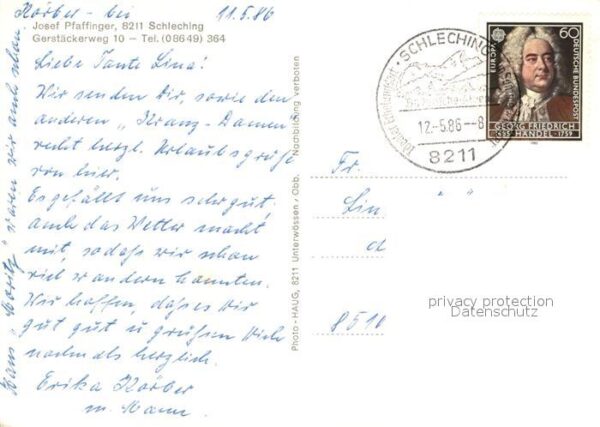 Körber - bei 11.5.86
Josef Pfaffinger, 8211 Schleching
Gerstäckerweg 10 – Tel. (08649) 364
Liebe Tante Lina!
Wir senden Dir, sowie den
anderen „Kranz-Damen"
recht herzl. Urlaubsgrüße
von hier.
Es gefällt uns sehr gut,
auch das Wetter macht
mit, sodaß wir schon
viel wandern konnten.
Wir hoffen, daß es Dir
gut geht u grüßen Dich
nochmals herzlich
Erika Körber
m. Mann.
Haus „Moritz" waren wir auch schon.
Photo-HAUG, 8211 Unterwössen/Obb. Nachbildung verboten
SCHLECHING
12.-5.86-8
8211
EUROPA
CEPT
60
DEUTSCHE BUNDESPOST
GEORG FRIEDRICH
1685 HÄNDEL 1759
Fr.
Lin
8510
privacy protection
Datenschutz